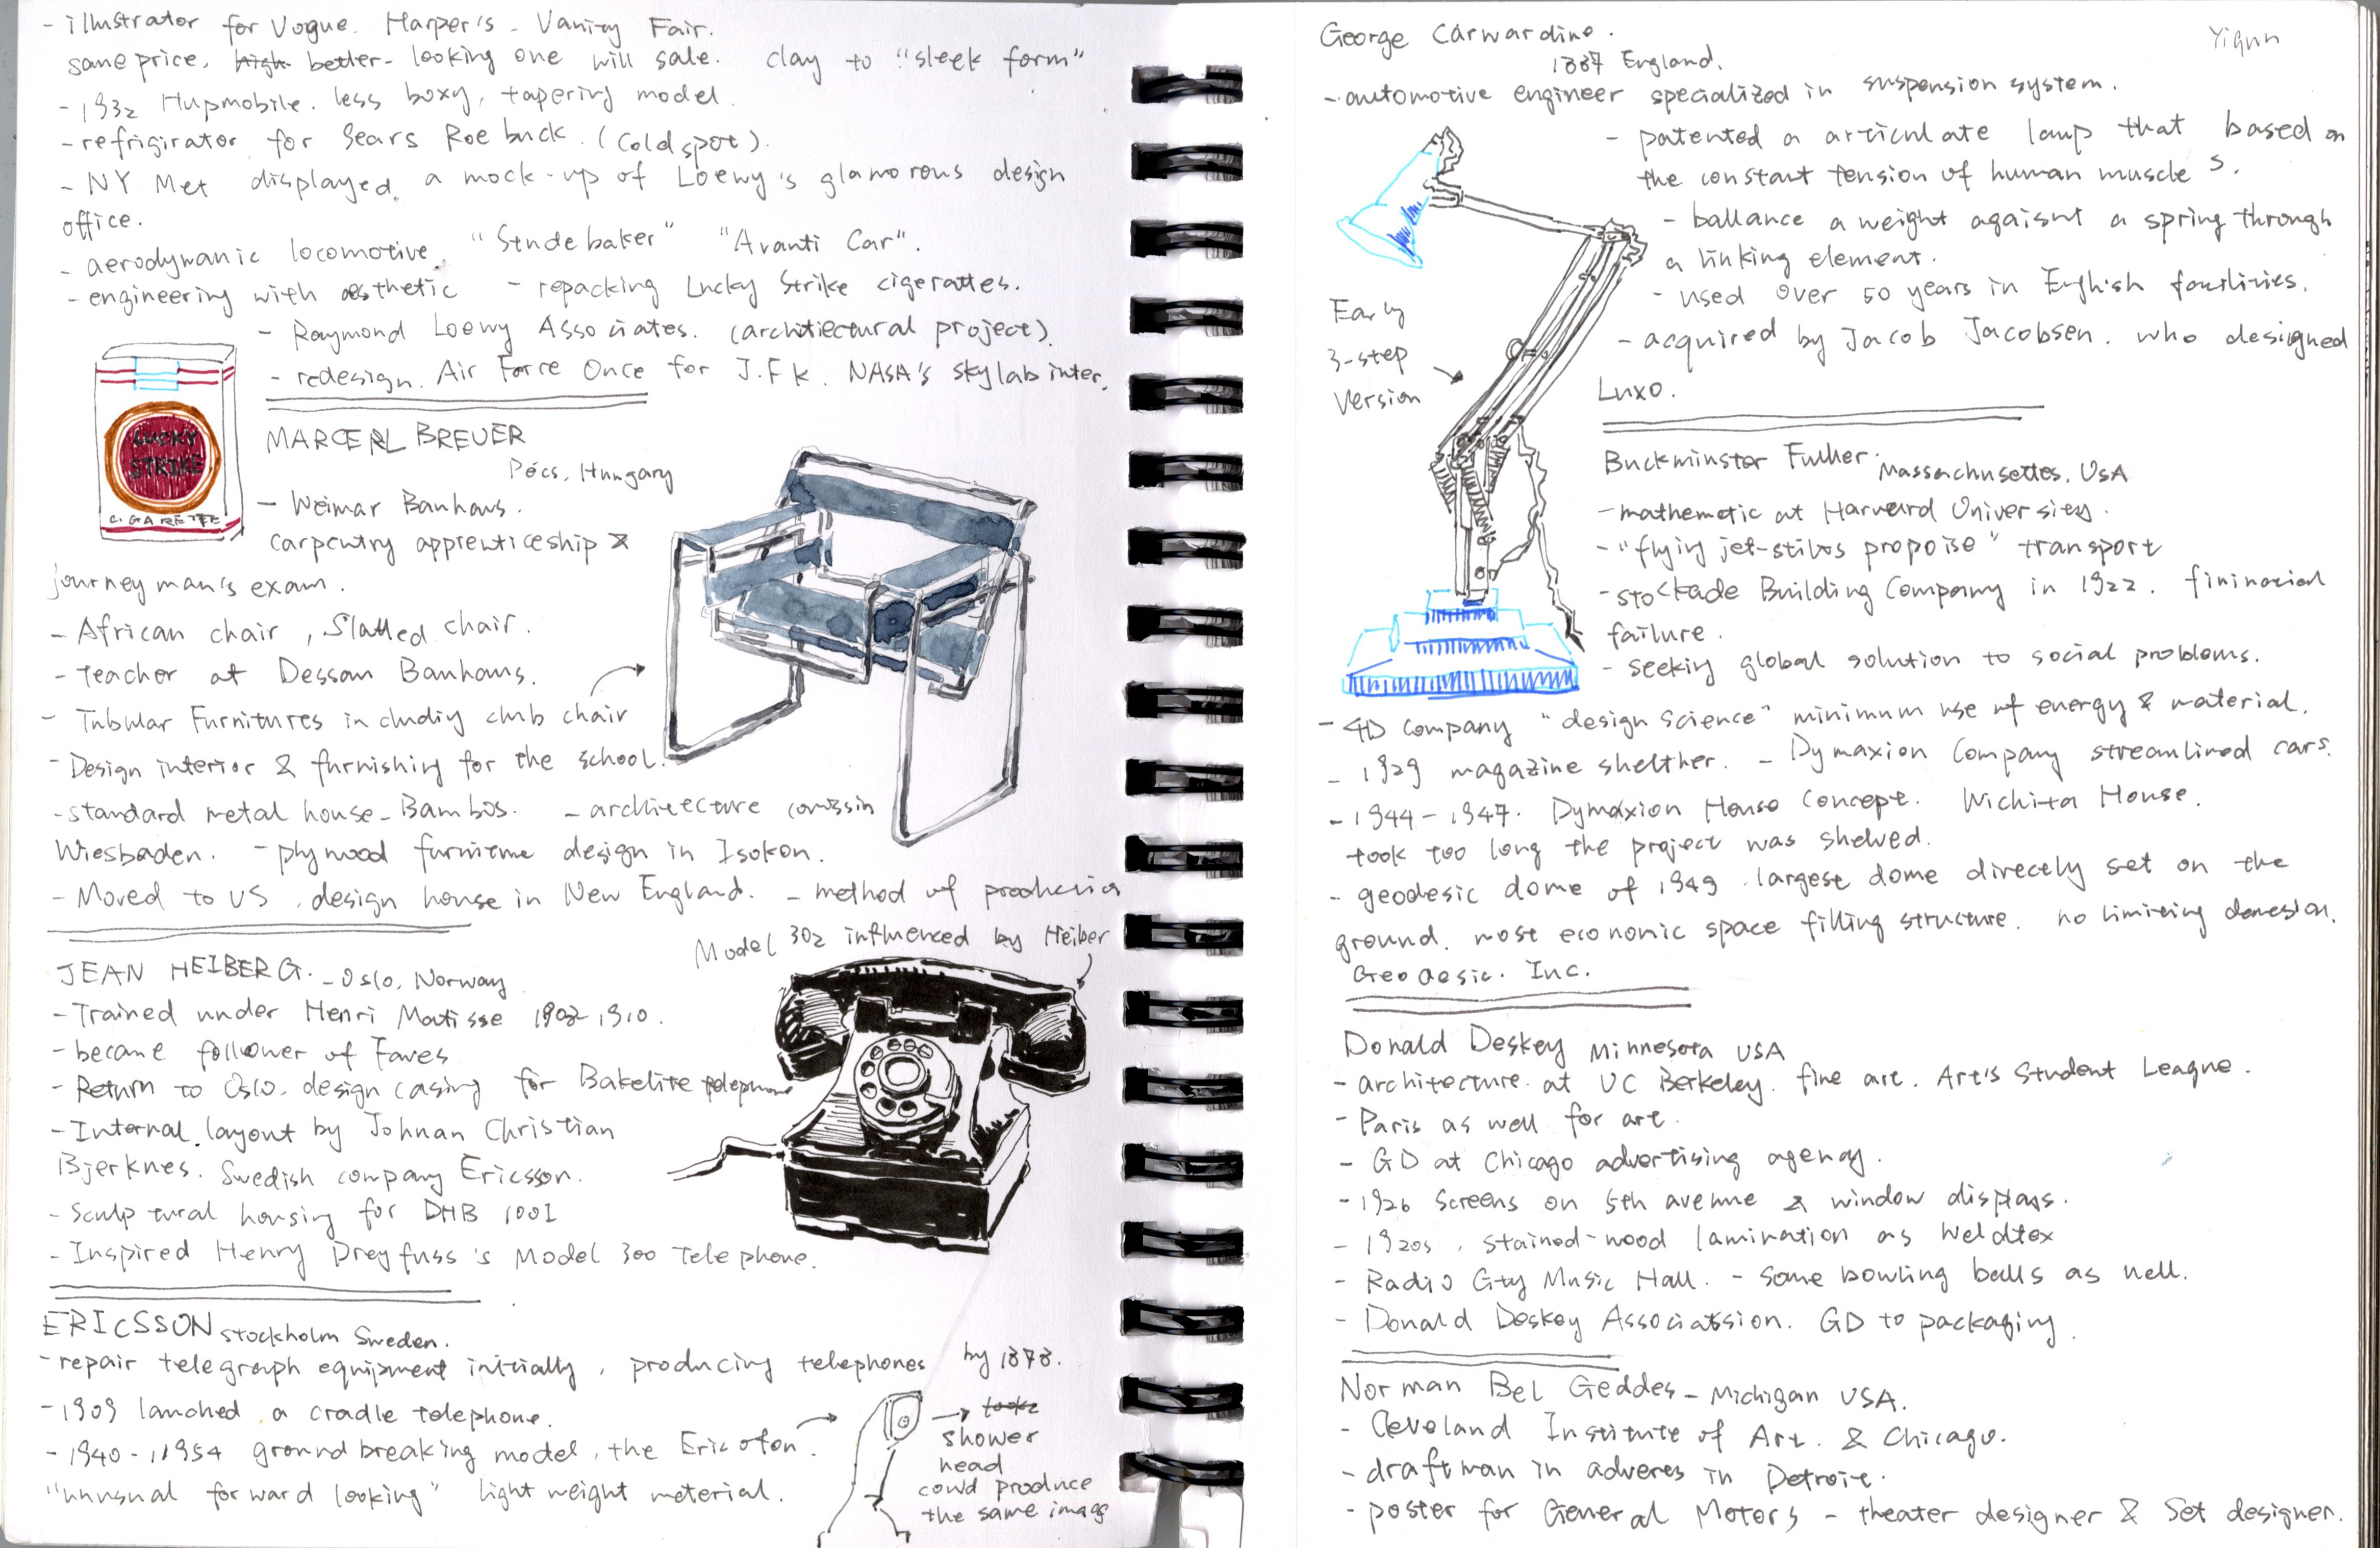 - illustrator for Vogue. Harper's - Vanity Fair.
same price. high better-looking one will sale. clay to "sleek form"
- 1932 Hupmobile. less boxy, tapering model.
- refrigirator for Sears Roebuck. (Coldspot).
- NY Met displayed a mock-up of Loewy's glamorous design
office.
- aerodynamic locomotive. "Studebaker" "Avanti Car".
- engineering with aesthetic - repacking Lucky Strike cigerattes.
- Raymond Loewy Associates. (architectural project).
- redesign. Air Force Once for J.F.K. NASA's skylab inter.
LUCKY
STRIKE
CIGARETTE
MARCERL BREUER
Pécs, Hungary
- Weimar Bauhaus.
carpentry apprenticeship &
journeyman's exam.
- African chair, Slatted chair.
- teacher at Dessau Bauhaus.
- Tubular Furnitures including club chair
- Design interior & furnishing for the school.
- standard metal house - Bambos. - architecture comissin
Wiesbaden. - plywood furniture design in Isokon.
- Moved to US. design house in New England. - method of production
Model 302 influenced by Heiber
JEAN HEIBERG. - Oslo, Norway
- Trained under Henri Matisse 1908-1910.
- became follower of Faves
- Return to Oslo. design casing for Bakelite telephone
- Internal layout by Johnan Christian
Bjerknes. Swedish company Ericsson.
- Sculptural housing for DHB 1001
- Inspired Henry Dreyfuss's Model 300 Telephone.
ERICSSON Stockholm Sweden.
- repair telegraph equipment initially, producing telephones by 1878.
- 1909 lanched a cradle telephone.
- 1940-1954 groundbreaking model, the Ericofon.
"unusual forward looking" light weight meterial.
→ shower
head
could produce
the same image
Yiqun
George Carwardine.
1887 England.
- automotive engineer specialized in suspension system.
- patented a articulate lamp that based on
the constant tension of human muscles.
- ballance a weight agaisnt a spring through
a linking element.
- used over 50 years in English facilities.
- acquired by Jacob Jacobsen. who designed
Luxo.
Early
3-step
Version
Buckminster Fuller. Massachusettes, USA
- mathematic at Harvard University.
- "flying jet-stilts propoise" transport
- Stockade Building Company in 1922. fininacial
failure.
- seeking global solution to social problems.
- 4D Company "design science" minimum use of energy & material.
- 1929 magazine shelther. - Dymaxion Company streamlined cars.
- 1944-1947. Dymaxion House concept. Wichita House.
took too long the project was shelved.
- geodesic dome of 1949. largest dome direcely set on the
ground. most economic space filling structure. no limiting demesion.
Geodesic. Inc.
Donald Deskey Minnesota USA
- architecture at UC Berkeley. fine art. Art's Student League.
- Paris as well for art.
- GD at Chicago advertising agency.
- 1926 Screens on 5th avenue & window displays.
- 1920s, stained-wood lamination as Weldtex
- Radio City Music Hall. - Some bowling balls as well.
- Donald Deskey Associatsion. GD to packaging.
Norman Bel Geddes - Michigan USA.
- Cleveland Institute of Art. & Chicago.
- draftman in adveres in Detroit.
- poster for General Motors - theater designer & Set designer.